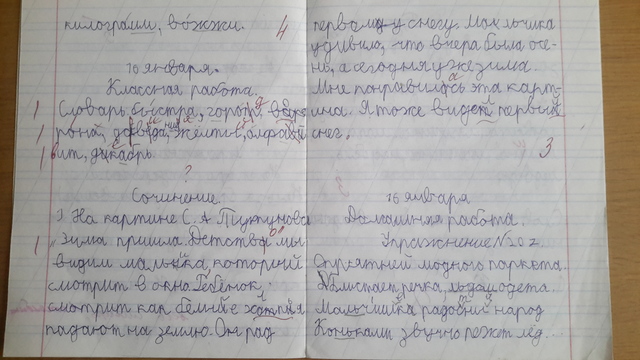 килограмм, вожжи.
4
16 января.
Классная работа.
Словарь: быстра, город,
рона,
вит, декабрь
?
Сочинение.
На картине С. А Тутунова
„Зима пришла. Детства" мы
видим малыйка, который
смотрит в окна. Ребёнок,
смотрит как белые
падают на землю. Он рад
первому снегу. Мальчика
удивило, что вчера была осе-
нь, а сегодня уже зима.
Мне понравилась эта карт-
ина. Я тоже видел первый
снег.
3
16 января
Домашняя работа.
Упражнение N 202
Опрятней модного паркета.
Блистает речка, льдом одета.
Мальчишка радосный народ
Коньками звучно режет лёд.